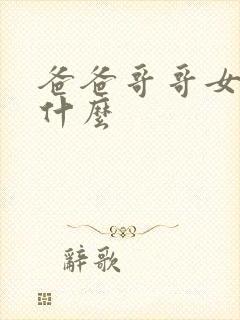 爸爸哥哥女
什麼
辭歌